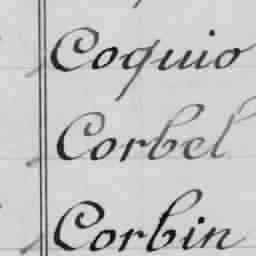 Coquio
Corbel
Corbin